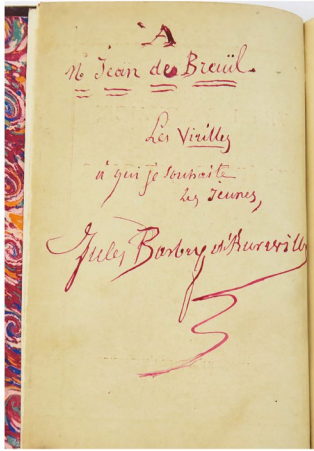 A
Mr Jean de Breüil.
Les Vieilles
à qui je souhaite
les jeunes,
Jules Barbey d'Aurevilly